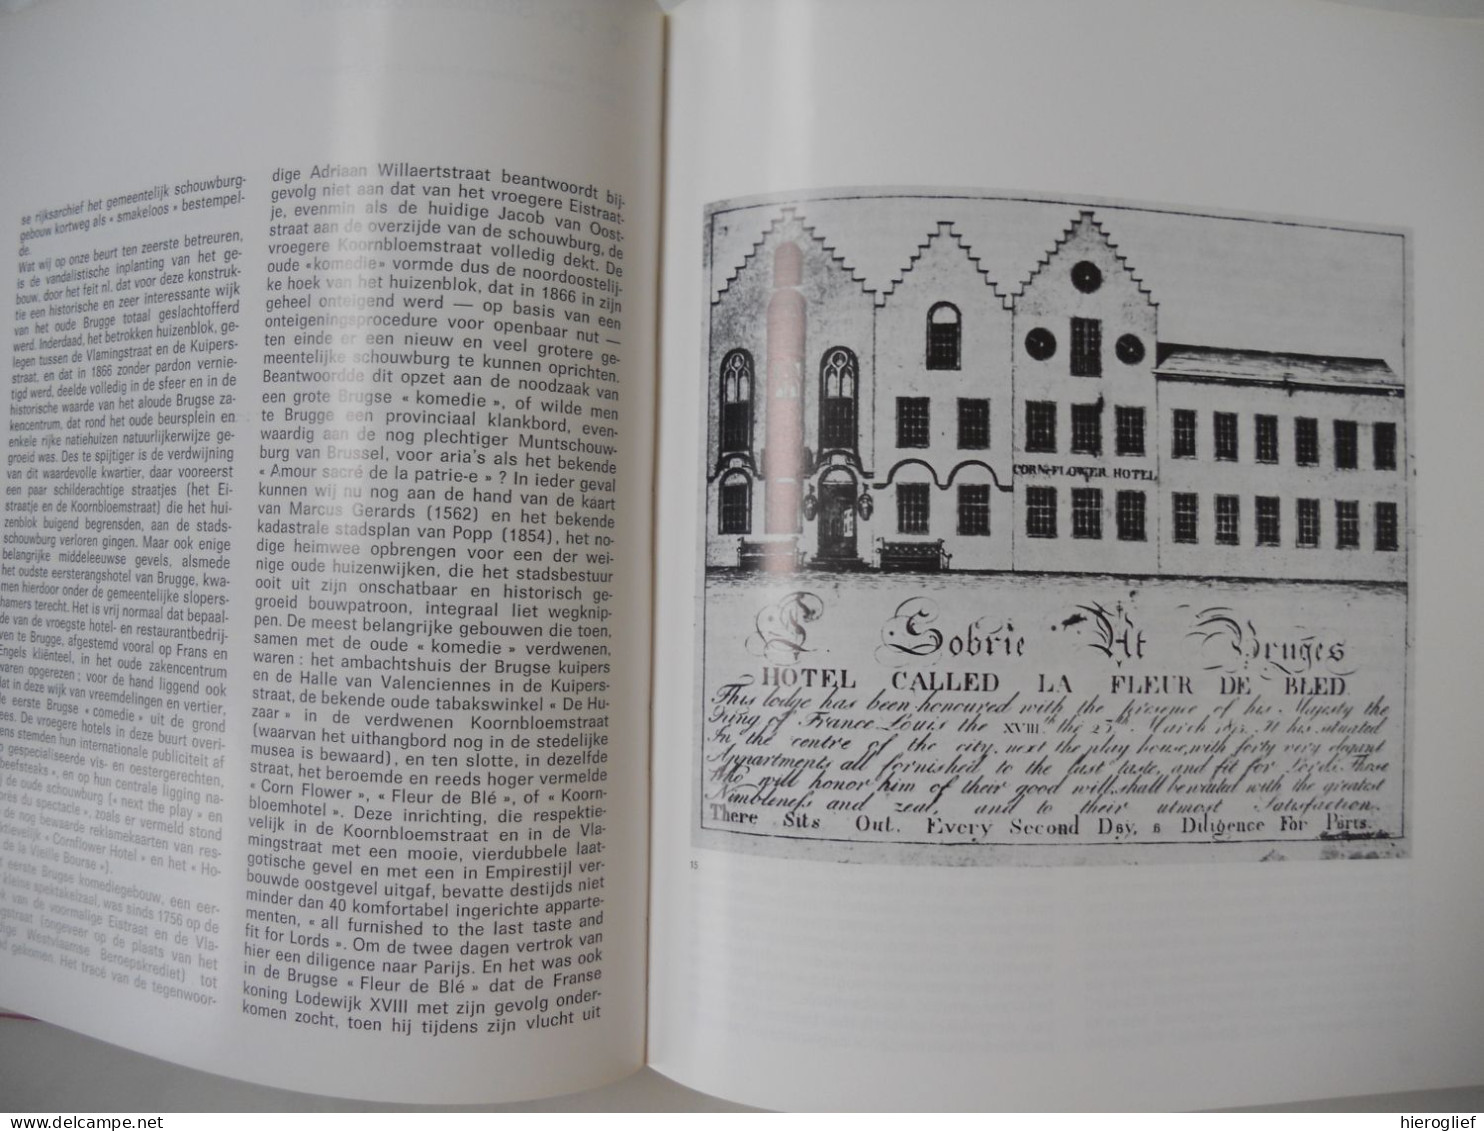 se rijksarchief het gemeentelijk schouwburg-
gebouw kortweg als « smakeloos » bestempel-
de.
Wat wij op onze beurt ten zeerste betreuren,
is de vandalistische inplanting van het ge-
bouw, door het feit nl. dat voor deze konstruk-
tie een historische en zeer interessante wijk
van het oude Brugge totaal geslachtofferd
werd. Inderdaad, het betrokken huizenblok, ge-
legen tussen de Vlamingstraat en de Kuipers-
straat, en dat in 1866 zonder pardon vernie-
tigd werd, deelde volledig in de sfeer en in de
historische waarde van het aloude Brugse za-
kencentrum, dat rond het oude beursplein en
enkele rijke natiehuizen natuurlijkerwijze ge-
groeid was. Des te spijtiger is de verdwijning
van dit waardevolle kwartier, daar vooreerst
een paar schilderachtige straatjes (het Ei-
straatje en de Koornbloemstraat) die het hui-
zenblok buigend begrensden, aan de stads-
schouwburg verloren gingen. Maar ook enige
belangrijke middeleeuwse gevels, alsmede
het oudste eersterangshotel van Brugge, kwa-
men hierdoor onder de gemeentelijke slopers-
hamers terecht. Het is vrij normaal dat bepaal-
de van de vroegste hotel- en restaurantbedrij-
ven te Brugge, afgestemd vooral op Frans en
Engels kliënteel, in het oude zakencentrum
waren opgerezen ; voor de hand liggend ook
dat in deze wijk van vreemdelingen en vertier,
de eerste Brugse « comedie » uit de grond
rees. De vroegere hotels in deze buurt overi-
gens stemden hun internationale publiciteit af
op gespecialiseerde vis- en oestergerechten,
« beefsteaks », en op hun centrale ligging na-
bij de oude schouwburg (« next the play » en
« après du spectacle », zoals er vermeld stond
de nog bewaarde reklamekaarten van res-
pektievelijk « Cornflower Hotel » en het « Ho-
de la Vieille Bourse »).
eerste Brugse komediegebouw, een eer-
kleine spektakelzaal, was sinds 1756 op de
van de voormalige Eistraat en de Vla-
mingstraat (ongeveer op de plaats van het
huidige Westvlaamse Beroepskrediet) tot
stand gekomen. Het tracé van de tegenwoor-
dige Adriaan Willaertstraat beantwoordt bij-
gevolg niet aan dat van het vroegere Eistraat-
je, evenmin als de huidige Jacob van Oost-
straat aan de overzijde van de schouwburg, de
vroegere Koornbloemstraat volledig dekt. De
oude «komedie» vormde dus de noordoostelij-
ke hoek van het huizenblok, dat in 1866 in zijn
geheel onteigend werd — op basis van een
onteigeningsprocedure voor openbaar nut —
ten einde er een nieuw en veel grotere ge-
meentelijke schouwburg te kunnen oprichten.
Beantwoordde dit opzet aan de noodzaak van
een grote Brugse « komedie », of wilde men
te Brugge een provinciaal klankbord, even-
waardig aan de nog plechtiger Muntschouw-
burg van Brussel, voor aria's als het bekende
« Amour sacré de la patrie-e » ? In ieder geval
kunnen wij nu nog aan de hand van de kaart
van Marcus Gerards (1562) en het bekende
kadastrale stadsplan van Popp (1854), het no-
dige heimwee opbrengen voor een der wei-
nige oude huizenwijken, die het stadsbestuur
ooit uit zijn onschatbaar en historisch ge-
groeid bouwpatroon, integraal liet wegknip-
pen. De meest belangrijke gebouwen die toen,
samen met de oude « komedie » verdwenen,
waren : het ambachtshuis der Brugse kuipers
en de Halle van Valenciennes in de Kuipers-
straat, de bekende oude tabakswinkel « De Hu-
zaar » in de verdwenen Koornbloemstraat
(waarvan het uithangbord nog in de stedelijke
musea is bewaard), en ten slotte, in dezelfde
straat, het beroemde en reeds hoger vermelde
« Corn Flower », « Fleur de Blé », of « Koorn-
bloemhotel ». Deze inrichting, die respektie-
velijk in de Koornbloemstraat en in de Vla-
mingstraat met een mooie, vierdubbele laat-
gotische gevel en met een in Empirestijl ver-
bouwde oostgevel uitgaf, bevatte destijds niet
minder dan 40 komfortabel ingerichte apparte-
menten, « all furnished to the last taste and
fit for Lords ». Om de twee dagen vertrok van
hier een diligence naar Parijs. En het was ook
in de Brugse « Fleur de Blé » dat de Franse
koning Lodewijk XVIII met zijn gevolg onder-
komen zocht, toen hij tijdens zijn vlucht uit
CORN-FLOWER HOTEL
Sobrie At Bruges
HOTEL CALLED LA FLEUR DE BLED
This lodge has been honoured with the presence of his Majesty the
King of France Louis the XVIII.th the 25th March. It his situated
In the centre of the city, next the play house, with forty very elegant
Appartments all fornished to the last taste, and fit for Lords. Those
Who will honor him of their good will, shall be waited with the greatest
Nimbleness and zeal, and to their utmost Satisfaction.
There Sits Out. Every Second Day, a Diligence For Paris.
15
hieroglief